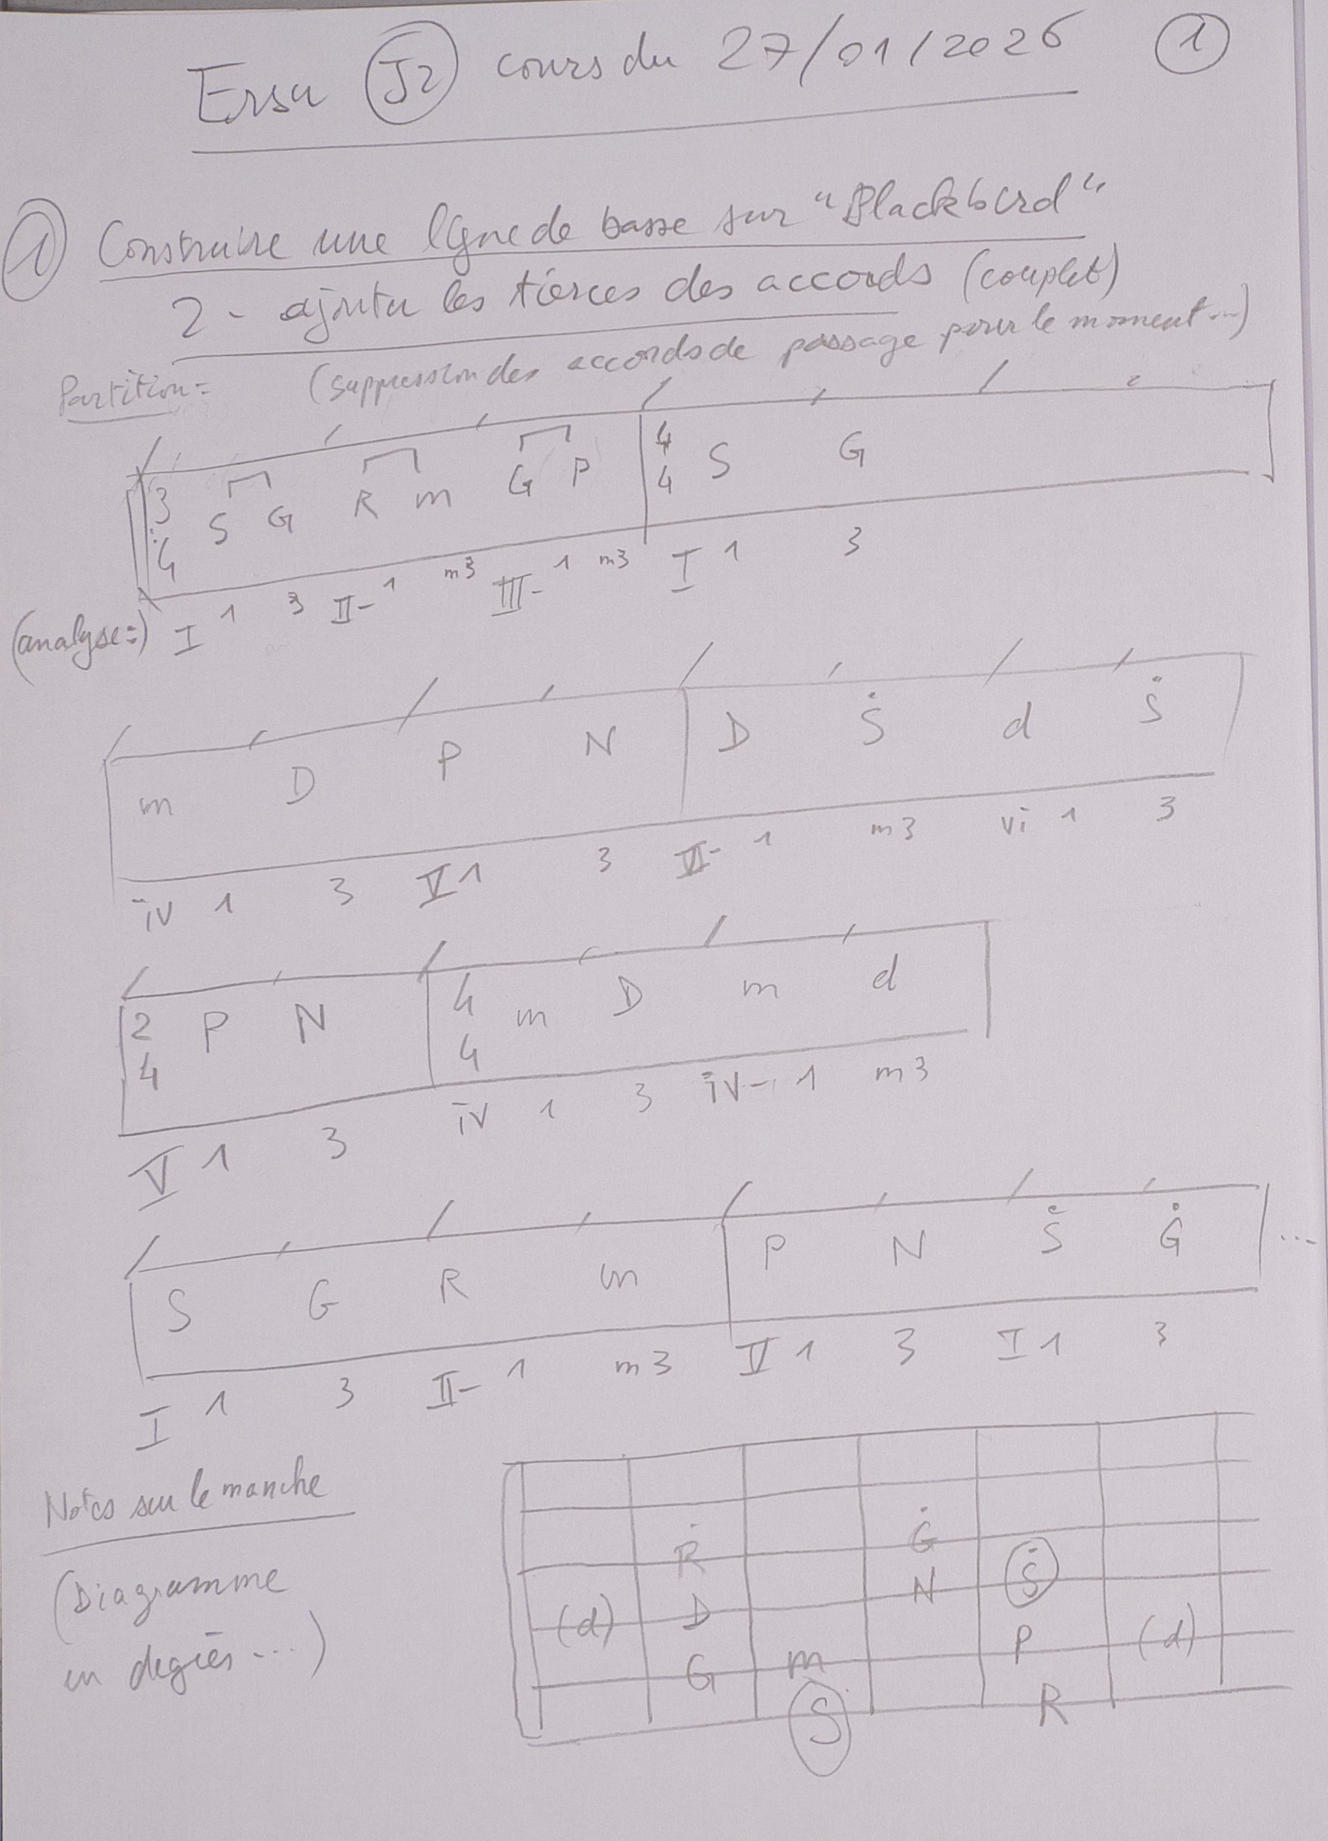 Ersu J2 cours du 27/01/2026 1
1 Construire une ligne de basse sur "Blackbird"
2 - ajouter les tierces des accords (couplet)
Partition = (suppression des accords de passage pour le moment...)
3 4 S G R m G P 4 4 S G
(analyse =) I 1 3 II- 1 m3 III- 1 m3 I 1 3
m D P N D Ṡ d Ṡ
iv 1 3 V 1 3 VI- 1 m3 vi 1 3
2 4 P N 4 4 m D m d
V 1 3 iv 1 3 iv- 1 m3
S G R m P N Ṡ Ġ ...
I 1 3 II- 1 m3 V 1 3 I 1 3
Notes sur le manche
(Diagramme
en degrés...)
Ṙ Ġ
N Ṡ
(d) D P (d)
G m
S R